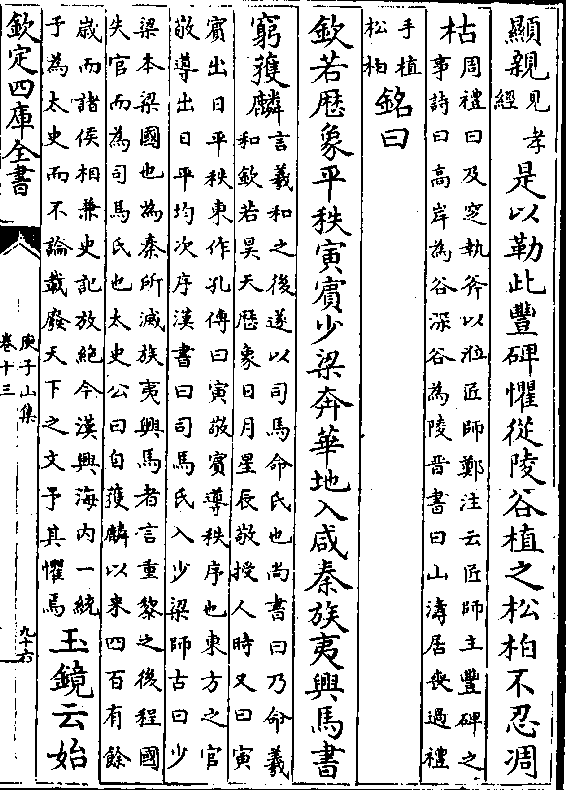 顯親見孝
經是以勒此豐碑懼從陵谷植之松柏不忍凋
枯周禮曰及窆執斧以涖匠師鄭注云匠師主豐碑之
事詩曰高岸為谷深谷為陵晉書曰山濤居喪過禮
手植
松柏銘曰
欽若厯象平秩寅賓少梁奔華地入咸秦族夷興馬書
窮獲麟言羲和之後遂以司馬命氏也尚書曰乃命羲
和欽若昊天厯象日月星辰敬授人時又曰寅
賓出日平秩東作孔傳曰寅敬賓導秩序也東方之官
敬導出日平均次序漢書曰司馬氏入少梁師古曰少
梁本梁國也為秦所滅族夷興馬者言重黎之後程國
失官而為司馬氏也太史公曰自獲麟以來四百有餘
歲而諸侯相兼史記放絶今漢興海内一統
予為太史而不論載廢天下之文予其懼焉玉鏡云始
欽定四庫全書
庾子山集
卷十三
九十六